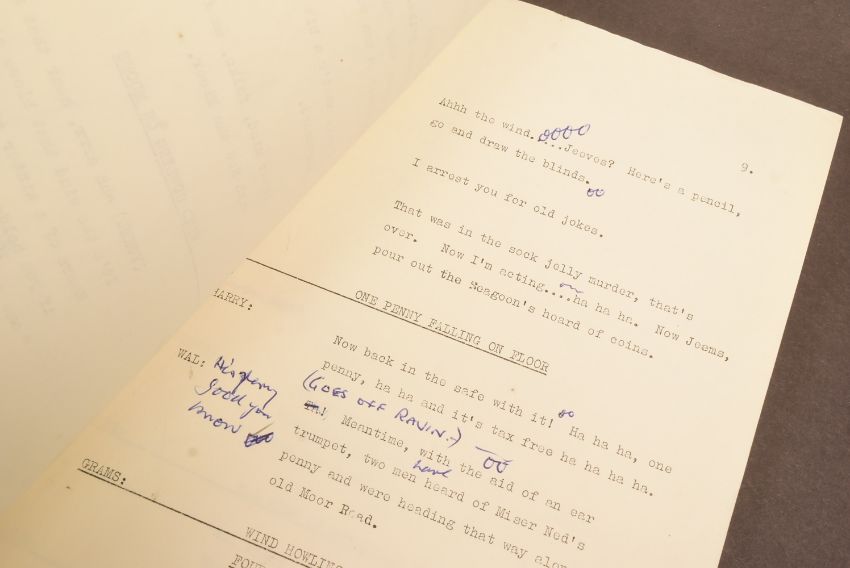 9.
Ahhh the wind.....Jeeves? Here's a pencil,
go and draw the blinds.
I arrest you for old jokes.
That was in the sock jelly murder, that's
over. Now I'm acting....ha ha ha. Now Jeems,
pour out the Seagoon's hoard of coins.
ONE PENNY FALLING ON FLOOR
HARRY:
Now back in the safe with it! Ha ha ha, one
penny, ha ha and it's tax free ha ha ha ha.
(GOES OFF RAVING)
WAL:
good you
know
Ta! Meantime, with the aid of an ear
trumpet, two men have heard of Miser Ned's
penny and were heading that way
old Moor Road.
GRAMS:
WIND HOWLING